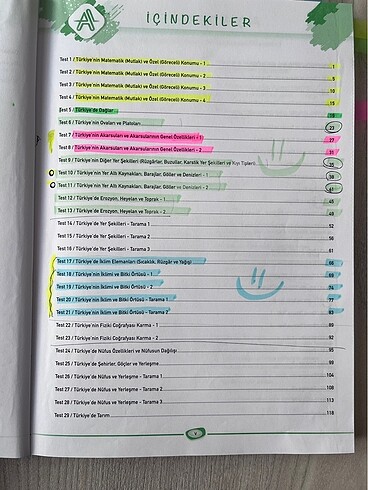 İÇİNDEKİLER
Test 1 / Türkiye'nin Matematik (Mutlak) ve Özel (Göreceli) Konumu - 1 1
Test 2 / Türkiye'nin Matematik (Mutlak) ve Özel (Göreceli) Konumu - 2 5
Test 3 / Türkiye'nin Matematik (Mutlak) ve Özel (Göreceli) Konumu - 3 10
Test 4 / Türkiye'nin Matematik (Mutlak) ve Özel (Göreceli) Konumu - 4 15
Test 5 / Türkiye'de Dağlar
Test 6 / Türkiye'nin Ovaları ve Platoları 23
Test 7 / Türkiye'nin Akarsuları ve Akarsularının Genel Özellikleri - 1 27
Test 8 / Türkiye'nin Akarsuları ve Akarsularının Genel Özellikleri - 2 31
Test 9 / Türkiye'nin Diğer Yer Şekilleri (Rüzgârlar, Buzullar, Karstik Yer Şekilleri ve Kıyı Tipleri) 35
Test 10 / Türkiye'nin Yer Altı Kaynakları, Barajlar, Göller ve Denizleri - 1 38
Test 11 / Türkiye'nin Yer Altı Kaynakları, Barajlar, Göller ve Denizleri - 2 41
Test 12 / Türkiye'de Erozyon, Heyelan ve Toprak - 1 45
Test 13 / Türkiye'de Erozyon, Heyelan ve Toprak - 2 49
Test 14 / Türkiye'de Yer Şekilleri - Tarama 1 52
Test 15 / Türkiye'de Yer Şekilleri - Tarama 2 58
Test 16 / Türkiye'de Yer Şekilleri - Tarama 3 61
Test 17 / Türkiye'de İklim Elemanları (Sıcaklık, Rüzgâr ve Yağış) 66
Test 18 / Türkiye'nin İklimi ve Bitki Örtüsü - 1 69
Test 19 / Türkiye'nin İklimi ve Bitki Örtüsü - 2 74
Test 20 / Türkiye'nin İklim ve Bitki Örtüsü - Tarama 1 77
Test 21 / Türkiye'nin İklim ve Bitki Örtüsü - Tarama 2 83
Test 22 / Türkiye'nin Fiziki Coğrafyası Karma - 1 89
Test 23 / Türkiye'nin Fiziki Coğrafyası Karma - 2 92
Test 24 / Türkiye'de Nüfus Özellikleri ve Nüfusun Dağılışı 95
Test 25 / Türkiye'de Şehirler, Göçler ve Yerleşme 99
Test 26 / Türkiye'nin Nüfus ve Yerleşme - Tarama 1 104
Test 27 / Türkiye'nin Nüfus ve Yerleşme - Tarama 2 109
Test 28 / Türkiye'nin Nüfus ve Yerleşme - Tarama 3 113
Test 29 / Türkiye'de Tarım 118